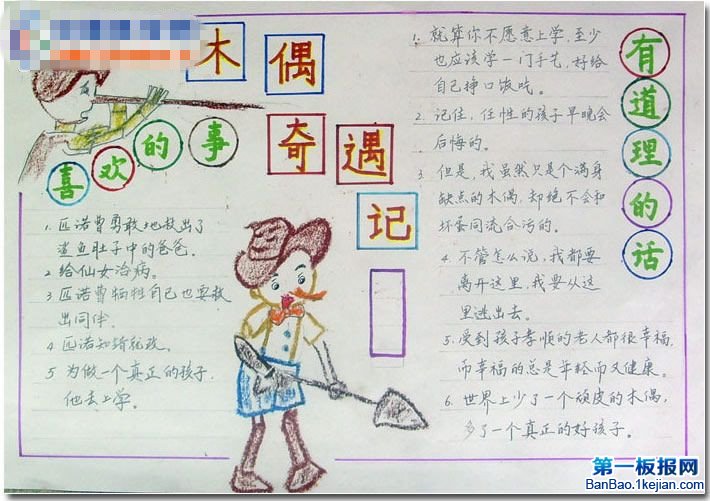 木偶
奇遇
记
喜欢的事
1. 匹诺曹勇敢地救出了
鲨鱼肚子中的爸爸。
2. 给仙女治病。
3 匹诺曹牺牲自己也要救
出同伴。
4 匹诺知错就改。
5 为做一个真正的孩子,
他去上学。
有道理的话
1. 就算你不愿意上学,至少
也应该学一门手艺,好给
自己挣口饭吃。
2. 记住,任性的孩子早晚会
后悔的。
3. 但是,我虽然只是个满身
缺点的木偶,却绝不会和
坏蛋同流合污的。
4. 不管怎么说,我都要
离开这里,我要从这
里逃出去。
5. 受到孩子孝顺的老人都很幸福,
而幸福的总是年轻而又健康。
6. 世界上少了一个顽皮的木偶,
多了一个真正的好孩子。
第一板报网
BanBao.1kejian.com